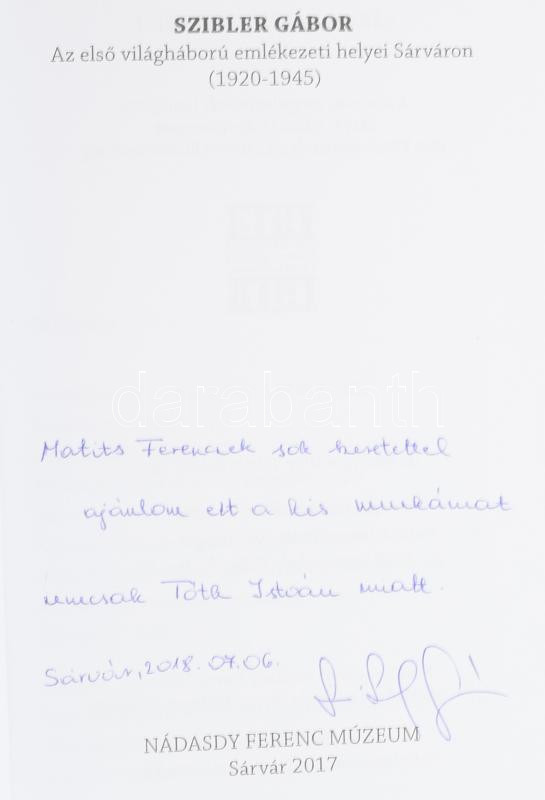 SZIBLER GÁBOR
Az első világháború emlékezeti helyei Sárváron
(1920-1945)
darabanth
Matits Ferencnek sok szeretettel
ajánlom ezt a kis munkámat
nemcsak Tóth István miatt.
Sárvár, 2018. 07. 06.
NÁDASDY FERENC MÚZEUM
Sárvár 2017